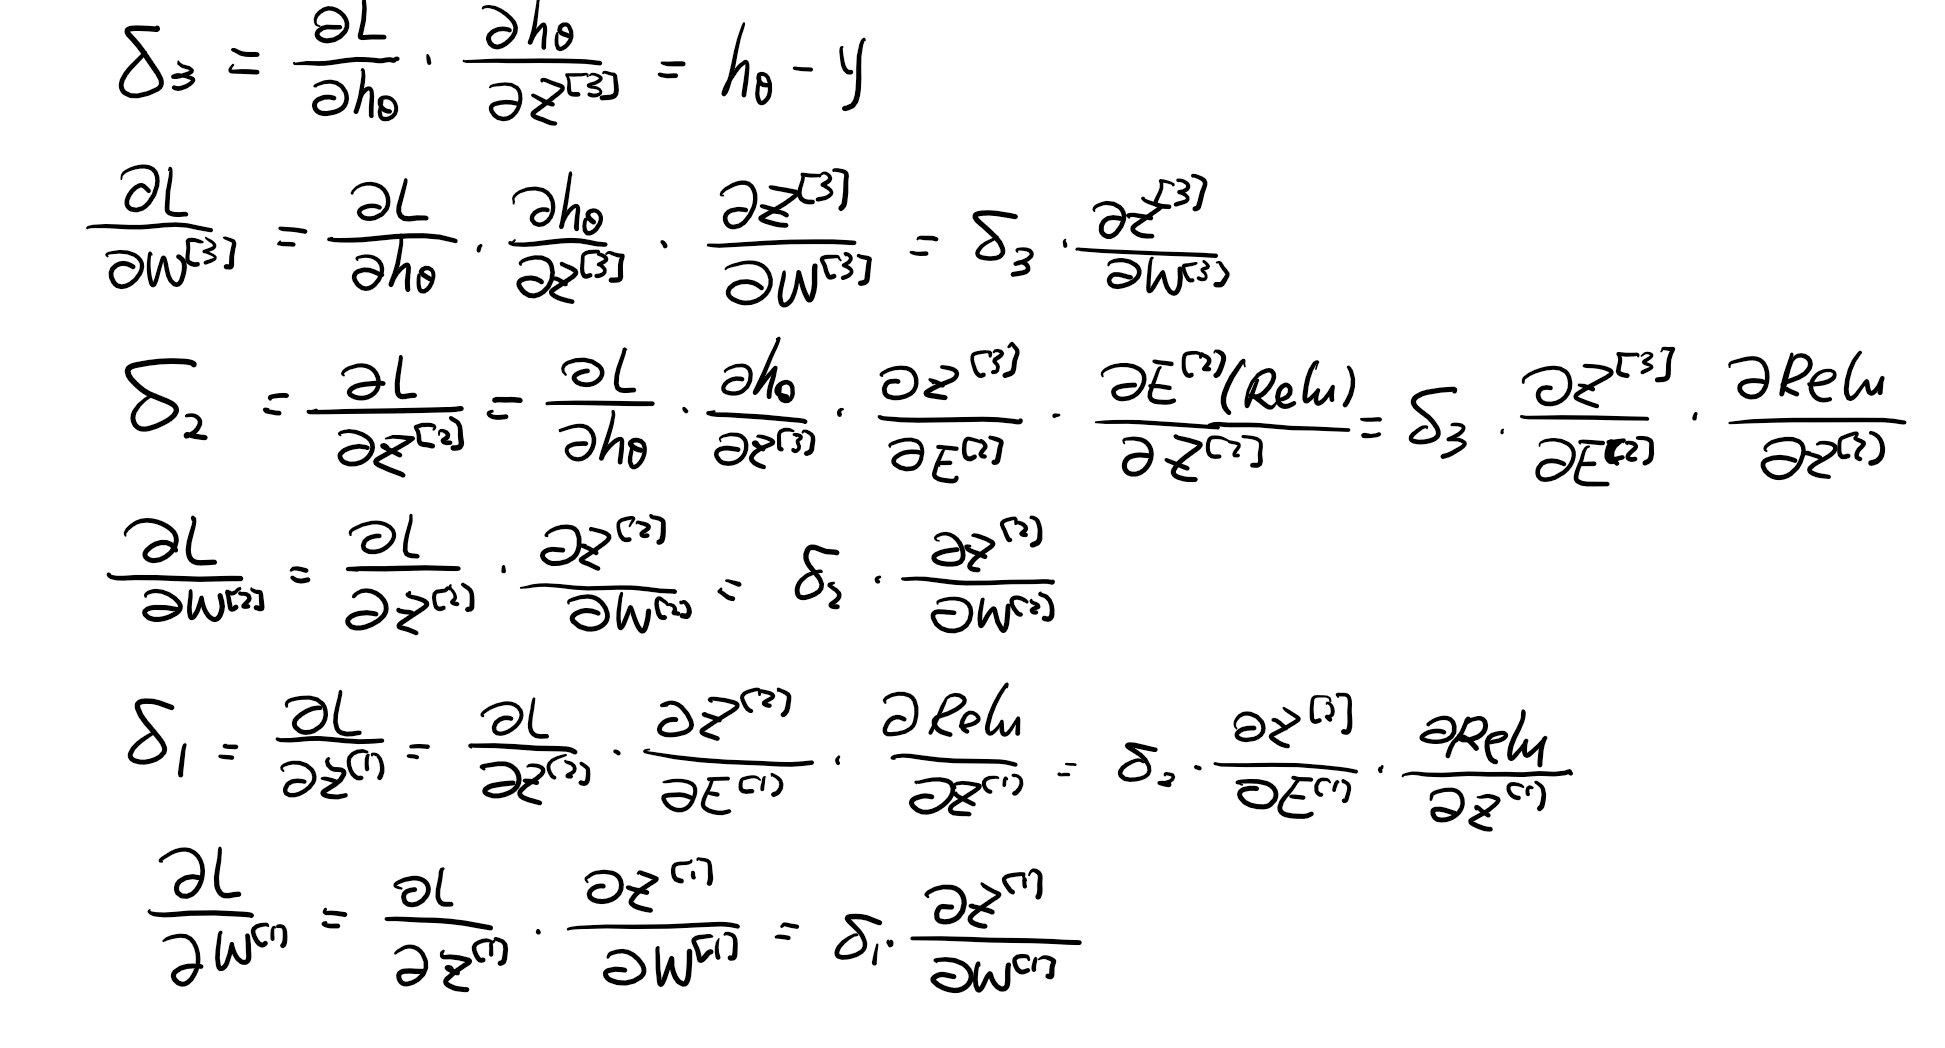 δ₃ = ∂L/∂hθ · ∂hθ/∂z^[3] = hθ - y
∂L/∂W^[3] = ∂L/∂hθ · ∂hθ/∂z^[3] · ∂z^[3]/∂W^[3] = δ₃ · ∂z^[3]/∂W^[3]
δ₂ = ∂L/∂z^[2] = ∂L/∂hθ · ∂hθ/∂z^[3] · ∂z^[3]/∂E^[2] · ∂E^[2](Relu)/∂z^[2] = δ₃ · ∂z^[3]/∂E^[2] · ∂Relu/∂z^[2]
∂L/∂W^[2] = ∂L/∂z^[2] · ∂z^[2]/∂W^[2] = δ₂ · ∂z^[2]/∂W^[2]
δ₁ = ∂L/∂z^[1] = ∂L/∂z^[2] · ∂z^[2]/∂E^[1] · ∂Relu/∂z^[1] = δ₂ · ∂z^[2]/∂E^[1] · ∂Relu/∂z^[1]
∂L/∂W^[1] = ∂L/∂z^[1] · ∂z^[1]/∂W^[1] = δ₁ · ∂z^[1]/∂W^[1]